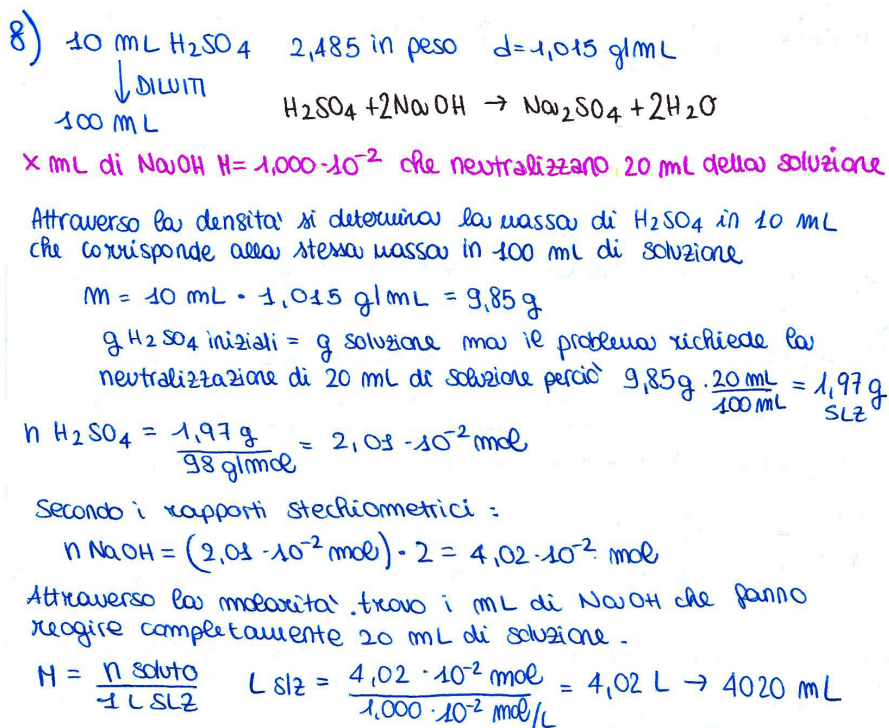 8) 10 mL H2SO4 2,485 in peso d=1,015 g/mL
↓ DILUITI
100 mL
H2SO4 + 2NaOH → Na2SO4 + 2H2O
x mL di NaOH M= 1,000·10⁻² che neutralizzano 20 mL della soluzione
Attraverso la densita' si determina la massa di H2SO4 in 10 mL
che corrisponde alla stessa massa in 100 mL di soluzione
m = 10 mL · 1,015 g/mL = 9,85 g
g H2SO4 iniziali = g soluzione ma il problema richiede la
neutralizzazione di 20 mL di soluzione perciò 9,85g · 20 mL/100 mL = 1,97 g
SLZ
n H2SO4 = 1,97 g / 98 g/mol = 2,01·10⁻² mol
Secondo i rapporti stechiometrici :
n NaOH = (2,01·10⁻² mol) · 2 = 4,02·10⁻² mol
Attraverso la molarita' trovo i mL di NaOH che fanno
reagire completamente 20 mL di soluzione.
M = n soluto / 1 L SLZ L slz = 4,02·10⁻² mol / 1,000·10⁻² mol/L = 4,02 L → 4020 mL